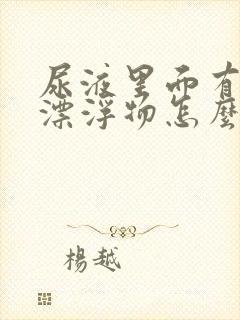 尿液里面有
漂浮物怎麽
楊越